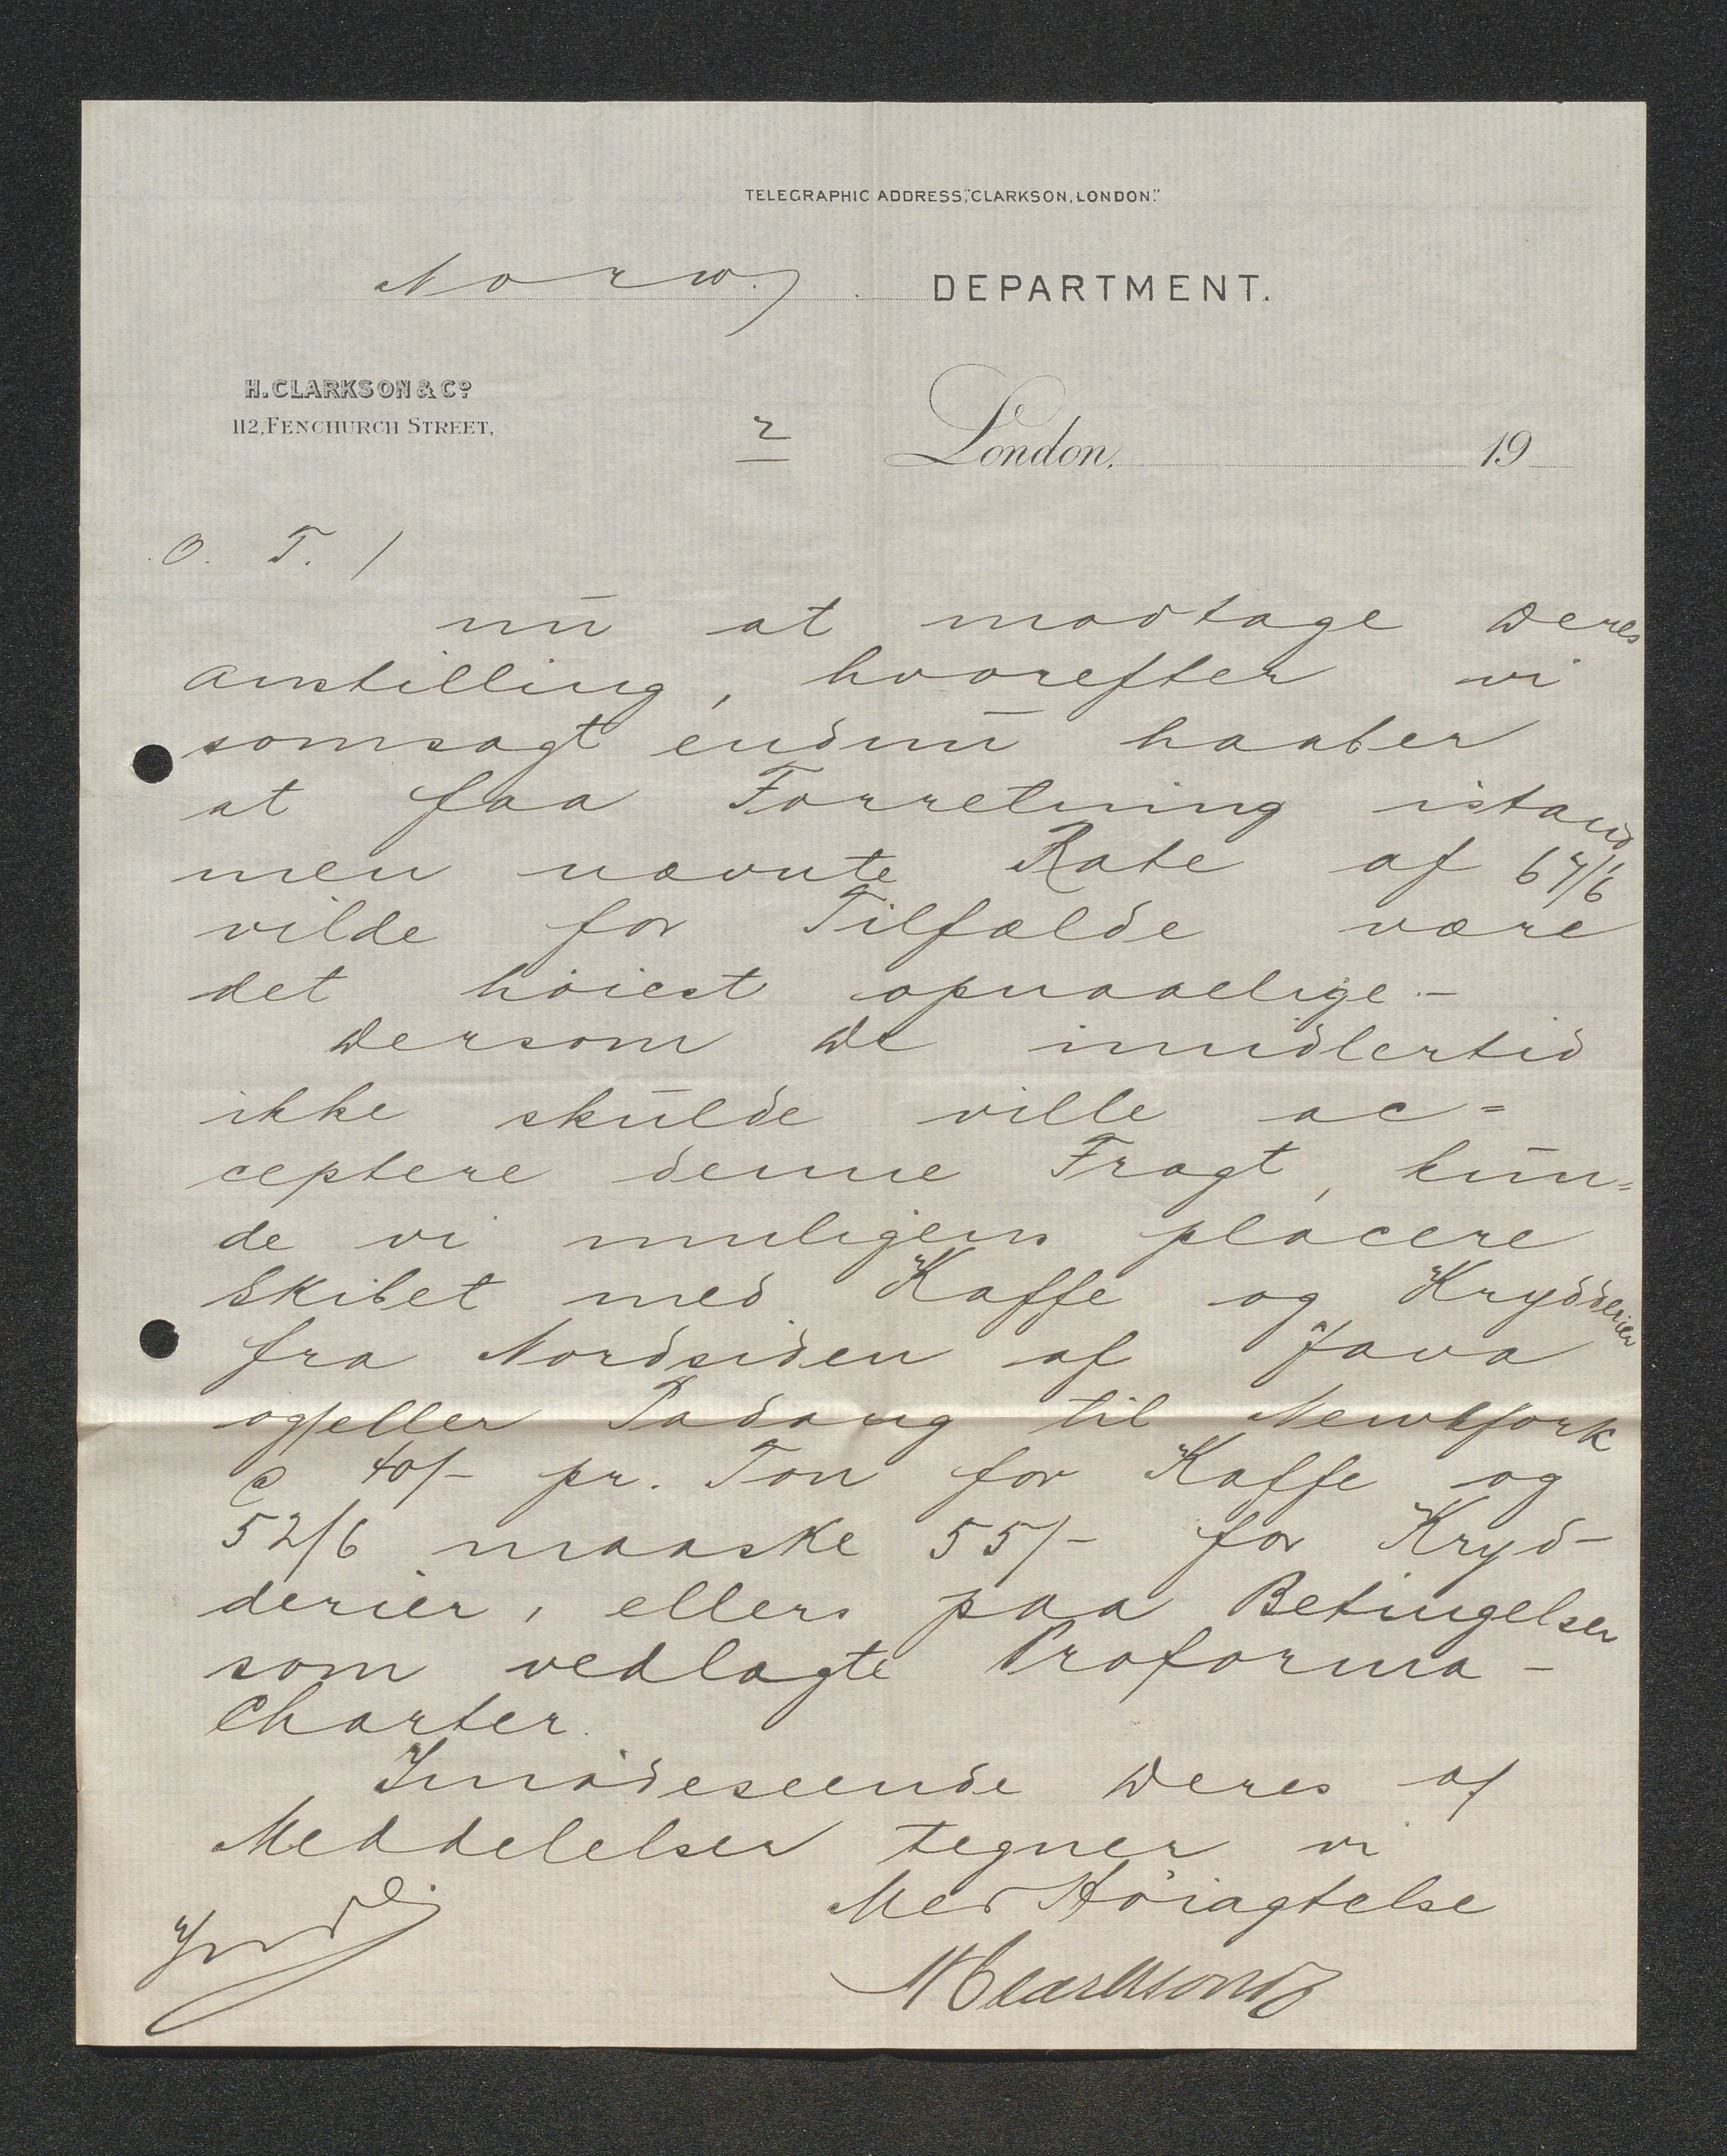 TELEGRAPHIC ADDRESS, "CLARKSON, LONDON."
Norw. DEPARTMENT.
H. CLARKSON & Co.
112, FENCHURCH STREET,
2 London, 19
O. T. /
nu at modtage Deres
anstilling, hvorefter vi
somsagt endnu haaber
at faa Forretning istand
men nævnte Rate af 67/6
vilde for Tilfælde være
det høiest opnaaelige. -
Dersom De imidlertid
ikke skulde ville ac=
ceptere denne Fragt, kun=
de vi muligens placere
Skibet med Kaffe og Krydderier
fra Nordsiden af Java
og/eller Padang til NewYork
@ 40/- pr. Ton for Kaffe og
52/6 maaske 55/- for Kryd-
derier, ellers paa Betingelser
som vedlagte Proforma-
Charter.
Imødeseende Deres af
Meddelelser tegner vi
Med Høiagtelse
H Clarkson & Co